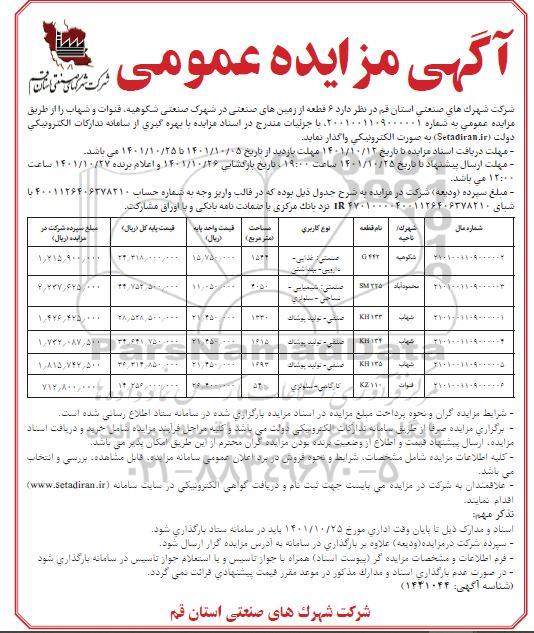 آگهی مزایده عمومی
شرکت شهرکهای صنعتی استان قم
شرکت شهرك هاي صنعتي استان قم در نظر دارد ۶ قطعه از زمین های صنعتی در شهرک صنعتی شکوهیه، قنوات و شهاب را از طریق
مزایده عمومی به شماره ۲۰۰۱۰۰۱۱۰۹۰۰۰۰۰۱، با جزئیات مندرج در اسناد مزایده با بهره گیری از سامانه تدارکات الکترونیکی
دولت (Setadiran.ir) به صورت الکترونیکی واگذار نماید.
- مهلت دریافت اسناد مزایده تا تاریخ ۱۴۰۱/۱۰/۱۲ مهلت بازدید از تاریخ ۱۴۰۱/۱۰/۰۵ تا ۱۴۰۱/۱۰/۲۵ می باشد.
- مهلت ارسال پیشنهاد تا تاریخ ۱۴۰۱/۱۰/۲۵ ساعت ۱۹:۰۰ ، تاریخ بازگشایی ۱۴۰۱/۱۰/۲۶ و اعلام برنده ۱۴۰۱/۱۰/۲۷ ساعت
۱۲:۰۰ می باشد.
- مبلغ سپرده (ودیعه) شرکت در مزایده به شرح جدول ذیل بوده که در قالب واریز وجه به شماره حساب ۴۰۰۰۱۱۲۶۴۰۶۳۷۸۲۱۰ با
شبای IR ۴۷۰۱۰۰۰۰۴۰۰۰۱۱۲۶۴۰۶۳۷۸۲۱۰ نزد بانك مرکزی یا ضمانت نامه بانکی و یا اوراق مشارکت.
شماره مال شهرک/ ناحیه نام قطعه نوع کاربری مساحت (متر مربع) قیمت واحد پایه (ریال) قیمت پایه کل (ریال) مبلغ سپرده شرکت در مزایده (ریال)
۲۱۰۱۰۰۱۱۰۹۰۰۰۰۰۲ شکوهیه G ۴۴۲ صنعتی: غذایی- دارویی- بهداشتی ۱۵۴۴ ۱۵،۷۵۰،۰۰۰ ۲۴،۳۱۸،۰۰۰،۰۰۰ ۱،۲۱۵،۹۰۰،۰۰۰
۲۱۰۱۰۰۱۱۰۹۰۰۰۰۰۳ محمودآباد SM ۲۲۵ صنعتی: شیمیایی- نساجی- سلولزی ۴۰۵۰ ۱۱،۰۵۰،۰۰۰ ۴۴،۷۵۲،۵۰۰،۰۰۰ ۲،۲۳۷،۶۲۵،۰۰۰
۲۱۰۱۰۰۱۱۰۹۰۰۰۰۰۱ شهاب KH ۱۳۳ صنعتی- تولید پوشاك ۱۳۳۰ ۲۱،۴۵۰،۰۰۰ ۲۸،۵۲۸،۵۰۰،۰۰۰ ۱،۴۲۶،۴۲۵،۰۰۰
۲۱۰۱۰۰۱۱۰۹۰۰۰۰۰۴ شهاب KH ۱۳۴ صنعتی- تولید پوشاك ۱۶۱۵ ۲۱،۴۵۰،۰۰۰ ۳۴،۶۴۱،۷۵۰،۰۰۰ ۱،۷۳۲،۰۸۷،۵۰۰
۲۱۰۱۰۰۱۱۰۹۰۰۰۰۰۵ شهاب KH ۱۳۵ صنعتی- تولید پوشاك ۱۶۹۳ ۲۱،۴۵۰،۰۰۰ ۳۶،۳۱۴،۸۵۰،۰۰۰ ۱،۸۱۵،۷۴۲،۵۰۰
۲۱۰۱۰۰۱۱۰۹۰۰۰۰۰۶ قنوات KZ ۱۱۰ کارگاهی- سلولزی ۵۴۰ ۲۶،۴۰۰،۰۰۰ ۱۴،۲۵۶،۰۰۰،۰۰۰ ۷۱۲،۸۰۰،۰۰۰
- شرایط مزایده گران و نحوه پرداخت مبلغ مزایده در اسناد مزایده بارگزاری شده در سامانه ستاد اطلاع رسانی شده است.
- برگزاری مزایده صرفا از طریق سامانه تدارکات الکترونیکی دولت می باشد و کلیه مراحل فرآیند مزایده شامل خرید و دریافت اسناد
مزایده، ارسال پیشنهاد قیمت و اطلاع از وضعیت برنده بودن مزایده گران محترم از این طریق امکان پذیر می باشد.
- کلیه اطلاعات مزایده شامل مشخصات، شرایط و نحوه فروش در برد اعلان عمومی سامانه مزایده، قابل مشاهده، بررسی و انتخاب
می باشد.
- علاقمندان به شرکت در مزایده می بایست جهت ثبت نام و دریافت گواهی الکترونیکی در سایت سامانه (www.Setadiran.ir)
اقدام نمایند.
تذکر مهم:
اسناد و مدارک ذیل تا پایان وقت اداری مورخ ۱۴۰۱/۱۰/۲۵ باید در سامانه ستاد بارگذاری شود.
- سپرده شرکت درمزایده(ودیعه) علاوه بر بارگذاری در سامانه به آدرس مزایده گزار ارسال شود.
- فرم اطلاعات و مشخصات مزایده گر (پیوست اسناد) همراه با جواز تاسیس و یا استعلام جواز تاسیس در سامانه بارگذاری شود
- در صورت عدم بارگذاری اسناد و مدارک مذکور در موعد مقرر قیمت پیشنهادی قرائت نمی گردد.
(شناسه آگهی: ۱۴۳۱۰۴۴)
شرکت شهرك های صنعتی استان قم
ParsNamadData
۰۲۱-۸۸۳۴۹۶۷۰-۵